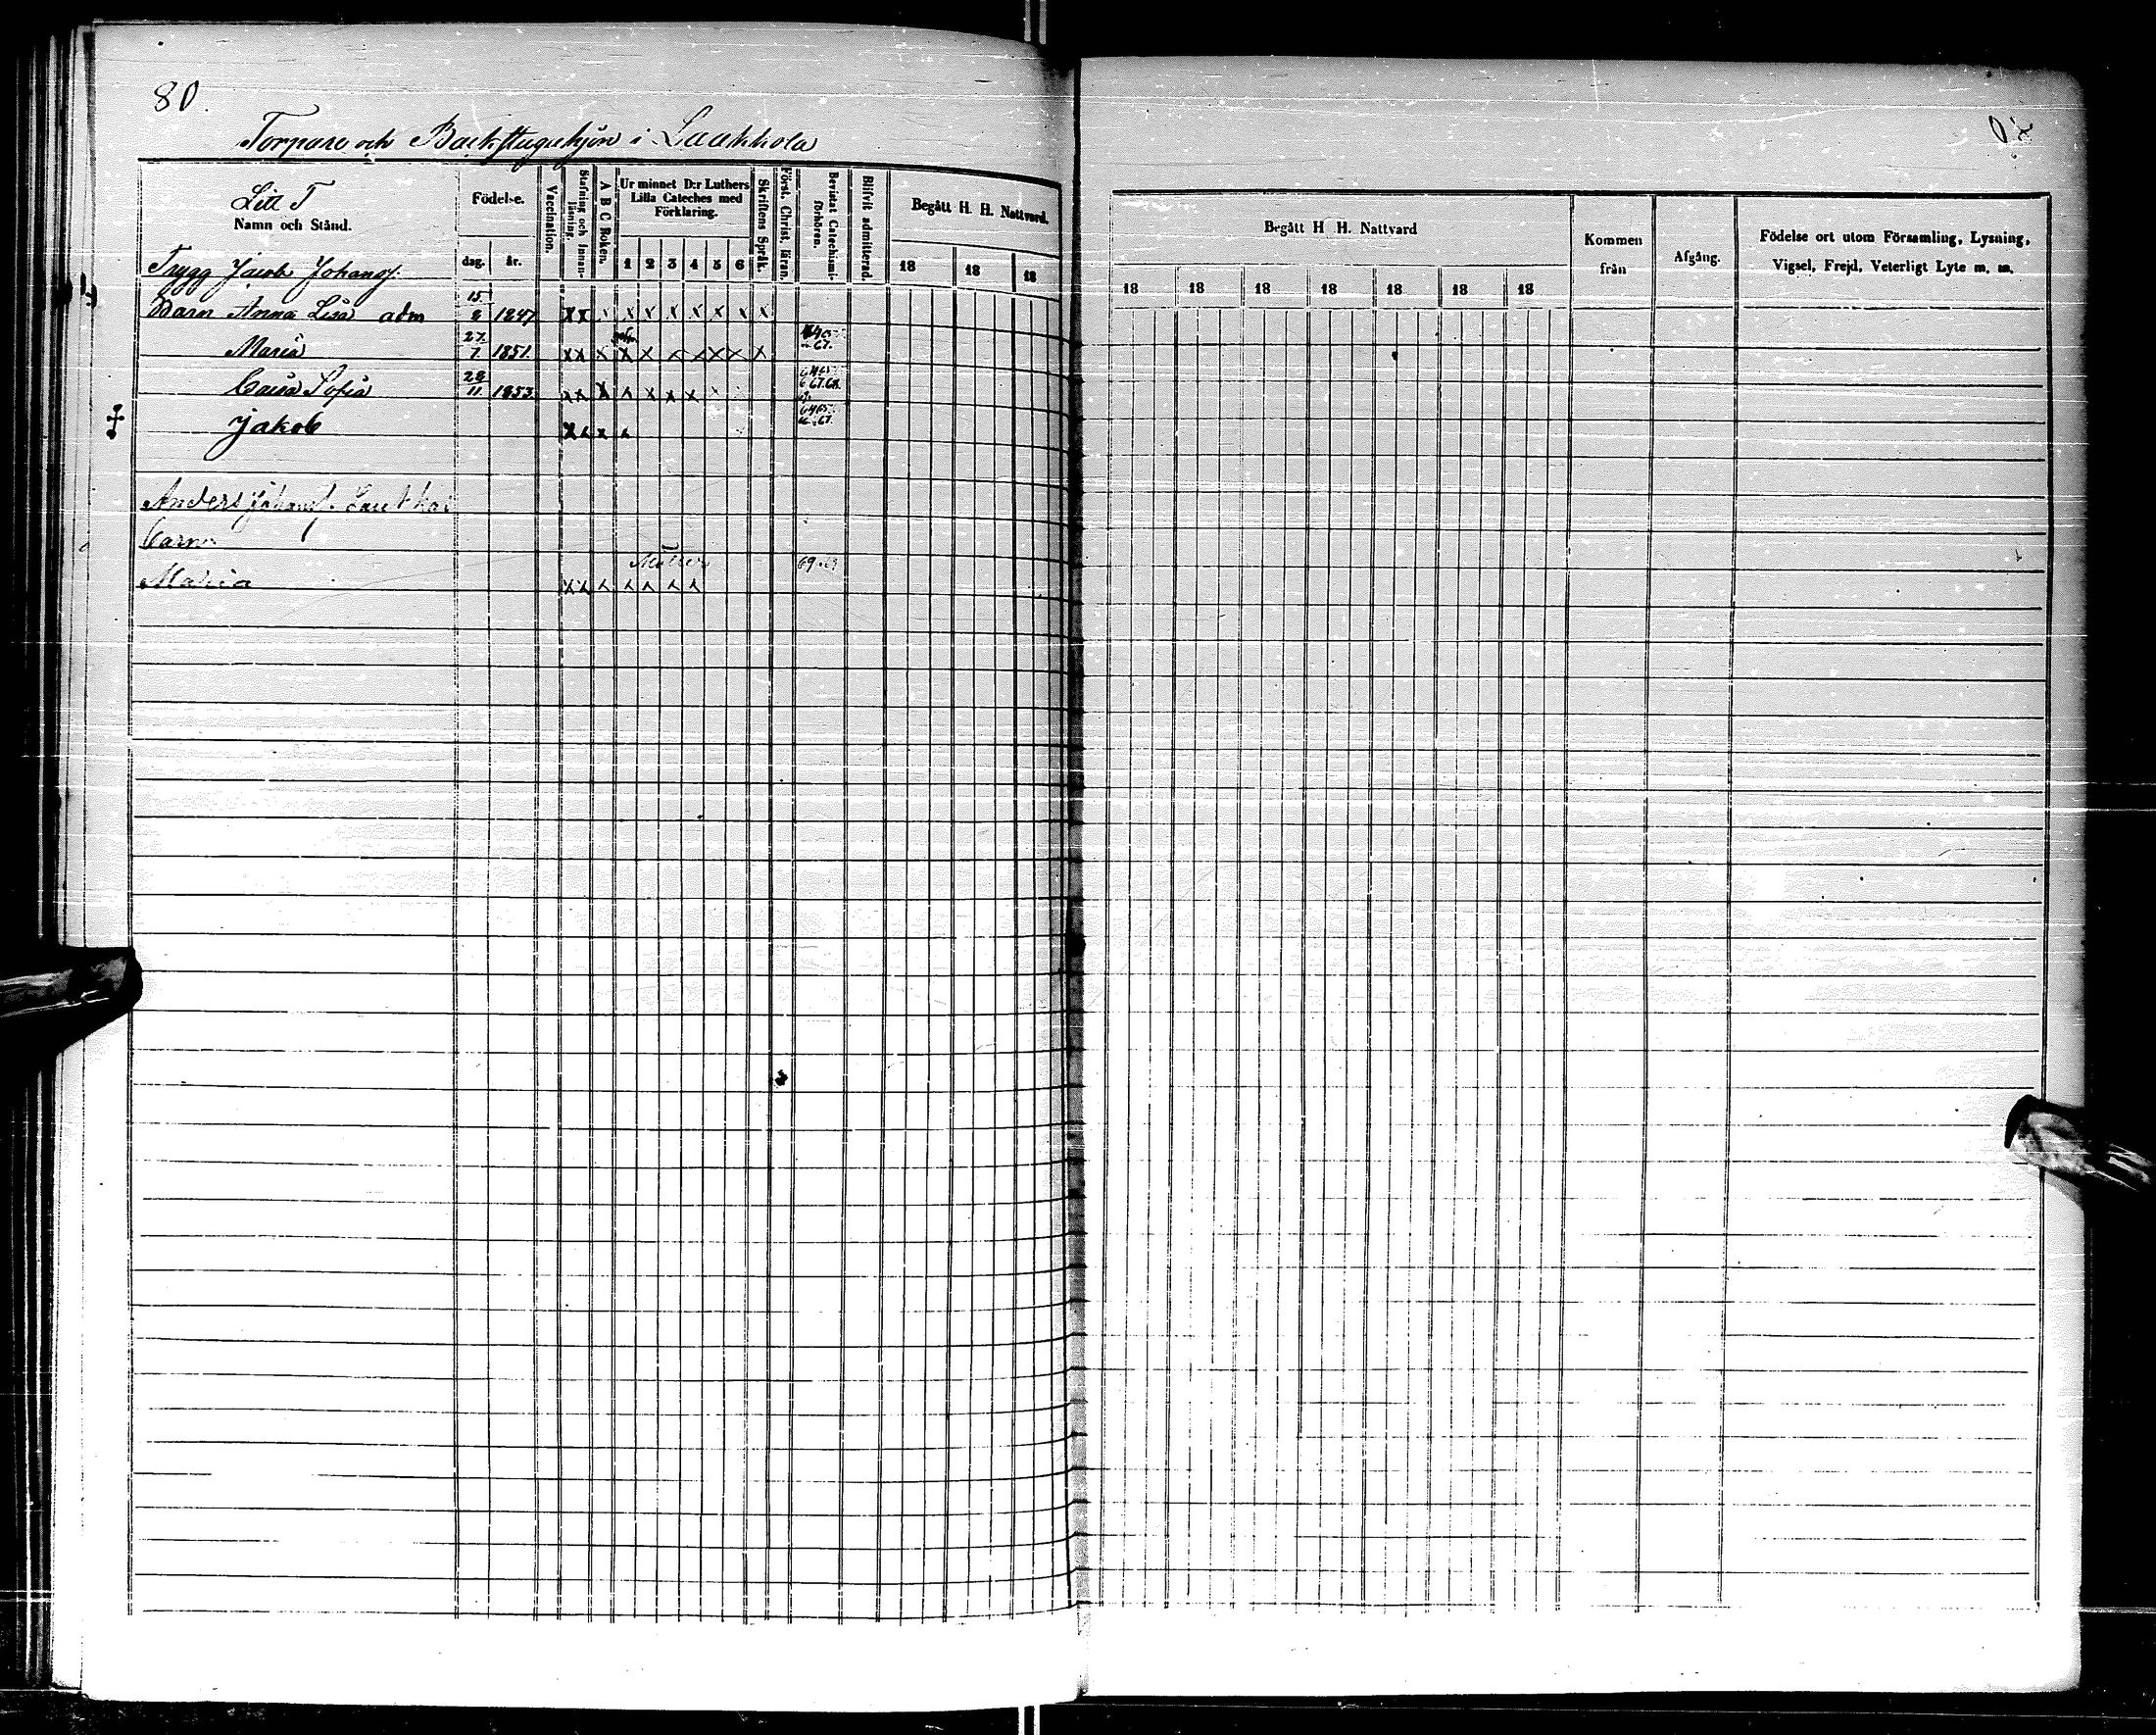 80.
Torpare och Backstuguhjon i Laukkola
Litt T
Namn och Stånd.
Födelse.
dag. år.
Vaccination.
Stafning och Innanläsning.
A B C Boken.
Ur minnet D:r Luthers Lilla Cateches med Förklaring.
1 2 3 4 5 6
Skriftens Språk.
Först. Christ. läran.
Bevistat Catechismiförhören.
Blifvit admitterad.
Begått H. H. Nattvard.
18 18 18
Trygg Jacob Johansf.
Barn Anna Lisa adm 15/2 1847 x x x x x x x x x x
Maria 27/7 1851. x x x x x x x x x x 67.
Caisa Sofia 28/11 1853. x x x x x x x x 67.68.
Jakob x x x x 67.
Anders Johansf.
Maria x x x x x x x 69
Begått H H. Nattvard
18 18 18 18 18 18 18
Kommen från
Afgång.
Födelse ort utom Församling, Lysning, Vigsel, Frejd, Veterligt Lyte m. m.